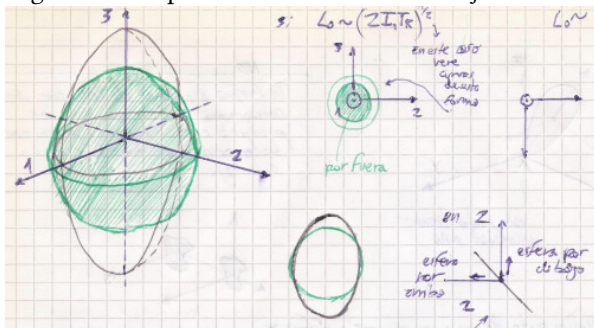 3
1
2
si L₀ ~ (2I₁T_R)^1/2
en este caso
veré
curvas
de esta
forma
3
1
2
por fuera
L₀ ~
en 2
esfera
por
arriba
2
esfera por
debajo